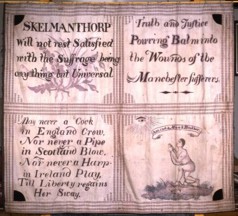 SKELMANTHORP
Will not rest Satisfied
with the Suffrage being
anything but Universal
Truth and Justice
Pouring Balm into
the Wounds of the
Manchester Sufferers.
May never a Cock
in England Crow,
Nor never a Pipe
in Scotland Blow,
Nor never a Harp
in Ireland Play,
Till Liberty regains
Her Sway.